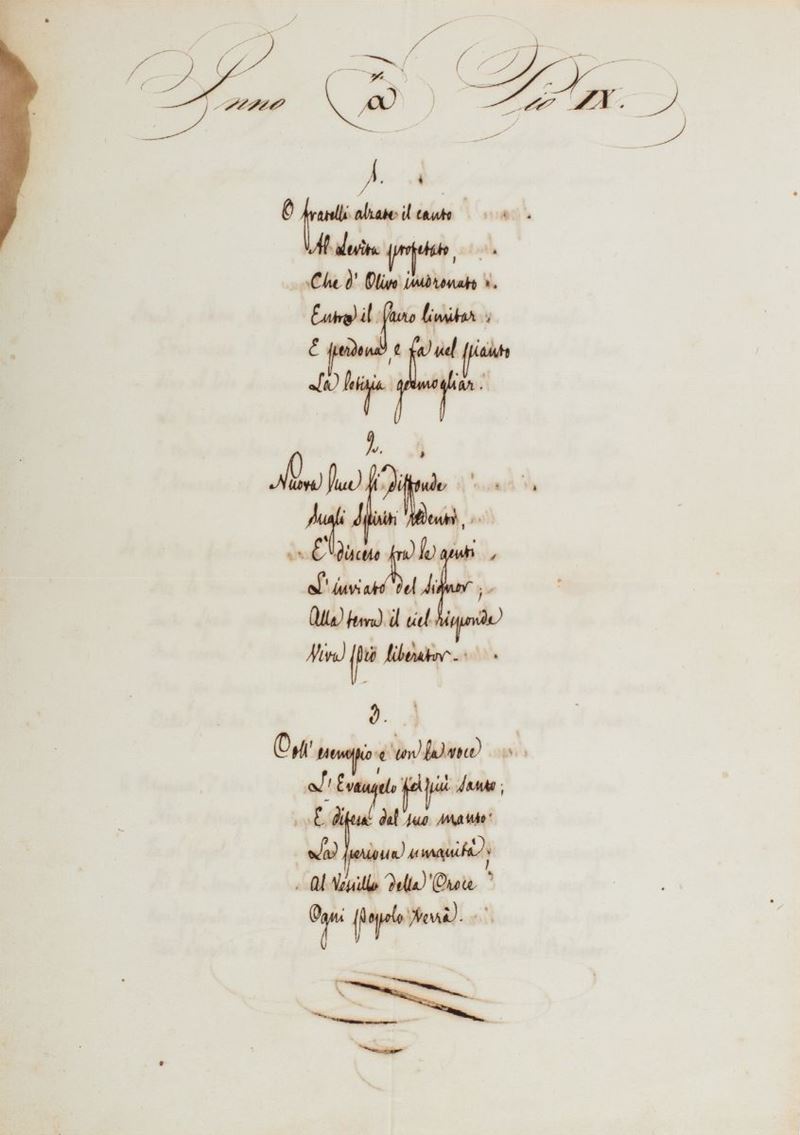 Inno a Pio IX.
1.
O fratelli alzate il canto
Al Levita profetato,
Che d' Olivo incoronato
Entrò il Sacro limitar
E perdona, e fa nel pianto
La letizia germogliar.
2.
Nuova luce si diffonde
Sugli Spiriti redenti,
E' disceso fra le genti
L' inviato del Signor;
Alla terra il ciel risponde
Viva Pio liberator.
3.
Coll' esempio, e con la voce
L' Evangelo fe' più santo;
E difesa dal suo manto
La umanità;
Al Vessillo della Croce
Ogni popolo verrà.